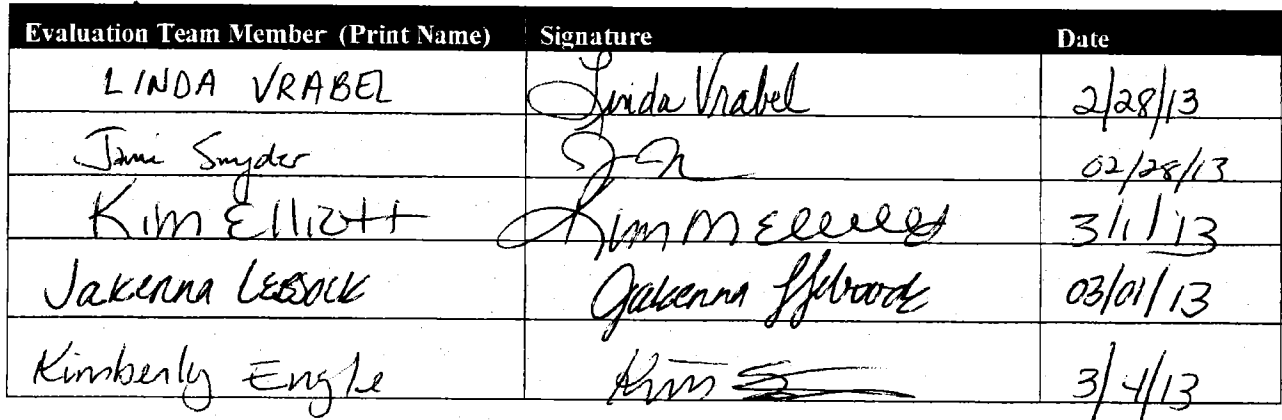 Evaluation Team Member (Print Name) Signature Date
LINDA VRABEL Linda Vrabel 2/28/13
Jami Snyder 02/28/13
Kim Elliott Kim M Elliott 3/1/13
Jakenna Lebsock Jakenna Lebsock 03/01/13
Kimberly Engle Kim 3/4/13